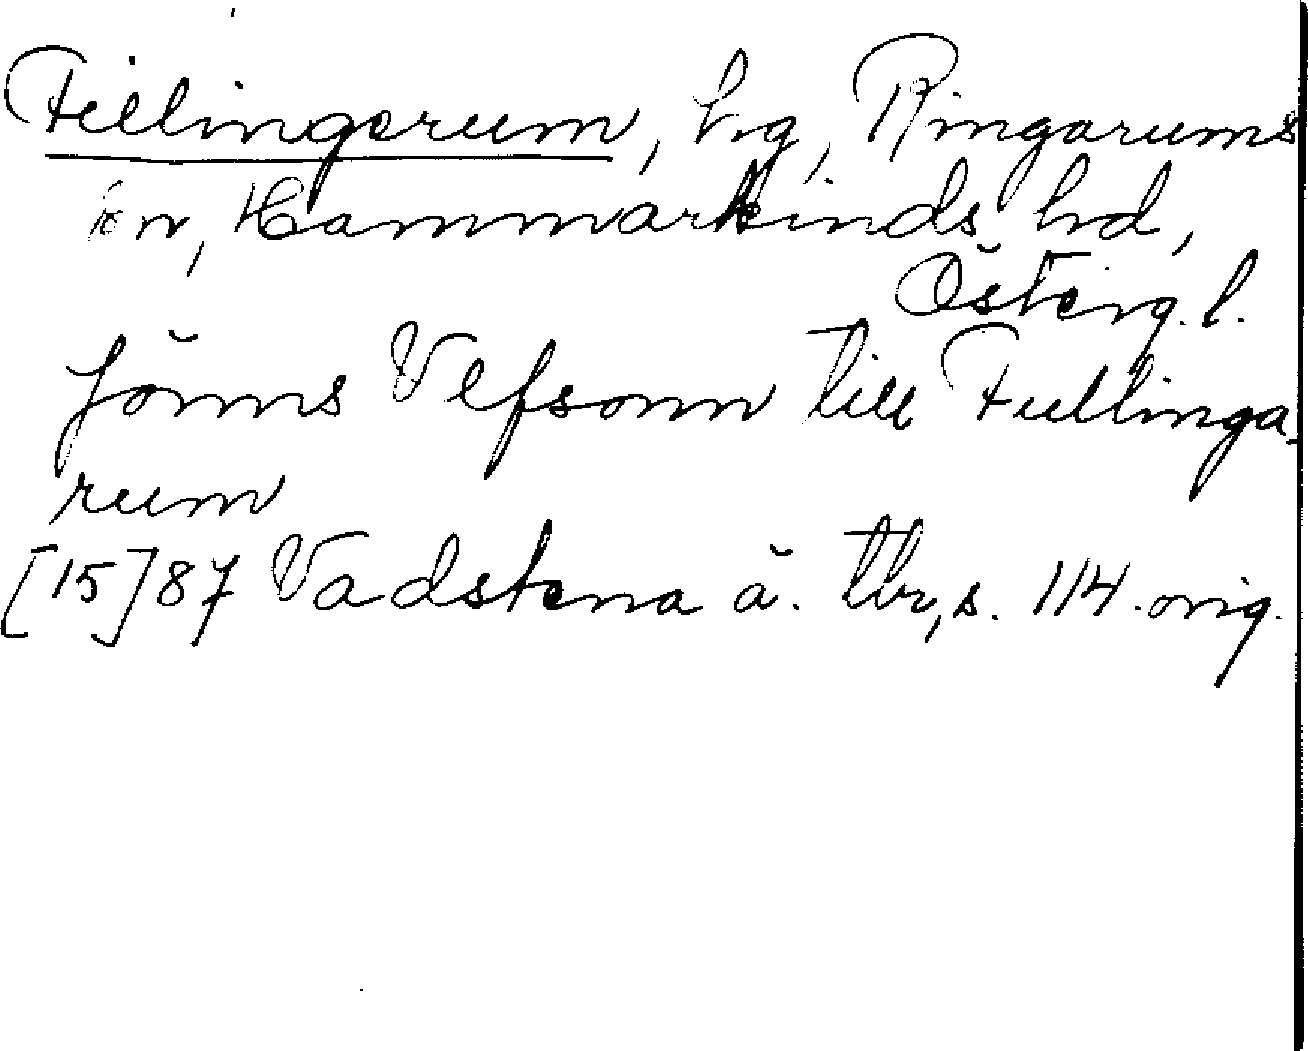 Fillingerum, hg, Ringarums
sn, Hammarkinds hd,
Österg. l.
Jönns Vlfsonn till Fullinga
rum
[15]87 Vadstena ä. tbr, s. 114. orig.